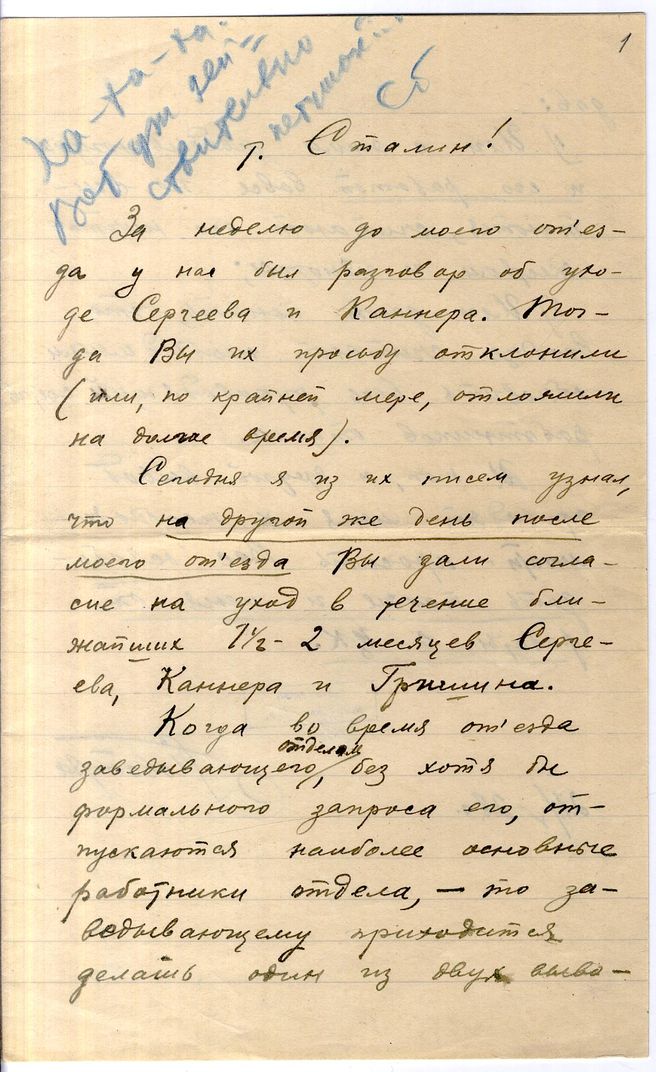 1
Ха-ха-ха.
Вот уж дей-
ствительно
петушок..
СБ
т. Сталин!
За неделю до моего от'ез-
да у нас был разговор об ухо-
де Сергеева и Каннера. Тог-
да Вы их просьбу отклонили
(или, по крайней мере, отложили
на долгое время).
Сегодня я из их писем узнал,
что на другой же день после
моего от'езда Вы дали согла-
сие на уход в течение бли-
жайших 1½-2 месяцев Серге-
ева, Каннера и Гришина.
Когда во время от'езда
отделом
заведывающего, без хотя бы
формального запроса его, от-
пускаются наиболее основные
работники отдела, — то за-
ведывающему приходится
делать один из двух выво-